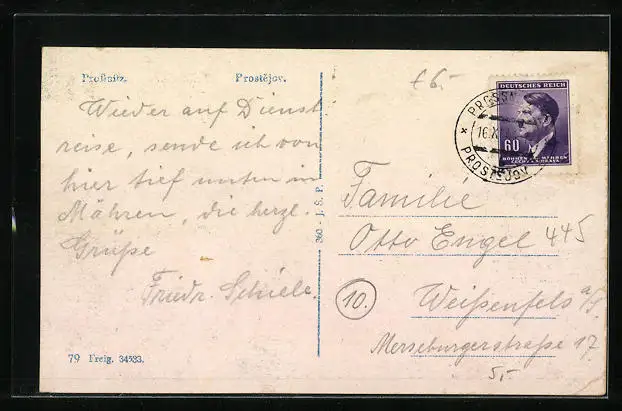 Proßnitz. Prostějov.
Wieder auf Dienst
reise, sende ich von
hier tief unten in
Mähren, die herzl.
Grüße
Friedr. Schiele.
79 Freig. 34583.
360 - J. S. P.
£6.-
DEUTSCHES REICH
60
BÖHMEN UND MÄHREN
ČECHY A MORAVA
PROSSNITZ
16.X.
PROSTĚJOV
Familie
Otto Engel 445
10. Weißenfels a/S.
Merseburgerstraße 17.
5,-